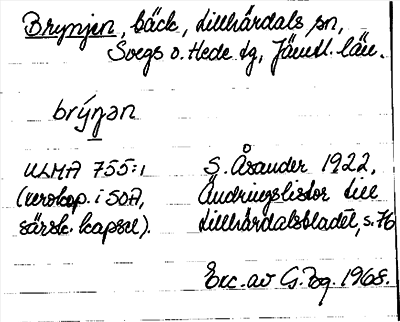 Brynjen, bäck, Lillhärdals sn,
Svegs o. Hede tg, Jämtl. län.
brýŋən
ULMA 755:1
(xerokop. i SOA,
särsk. kapsel).
S. Åsander 1922,
Ändringslistor till
Lillhärdalsbladet, s. 76
Exc. av G. 1968.